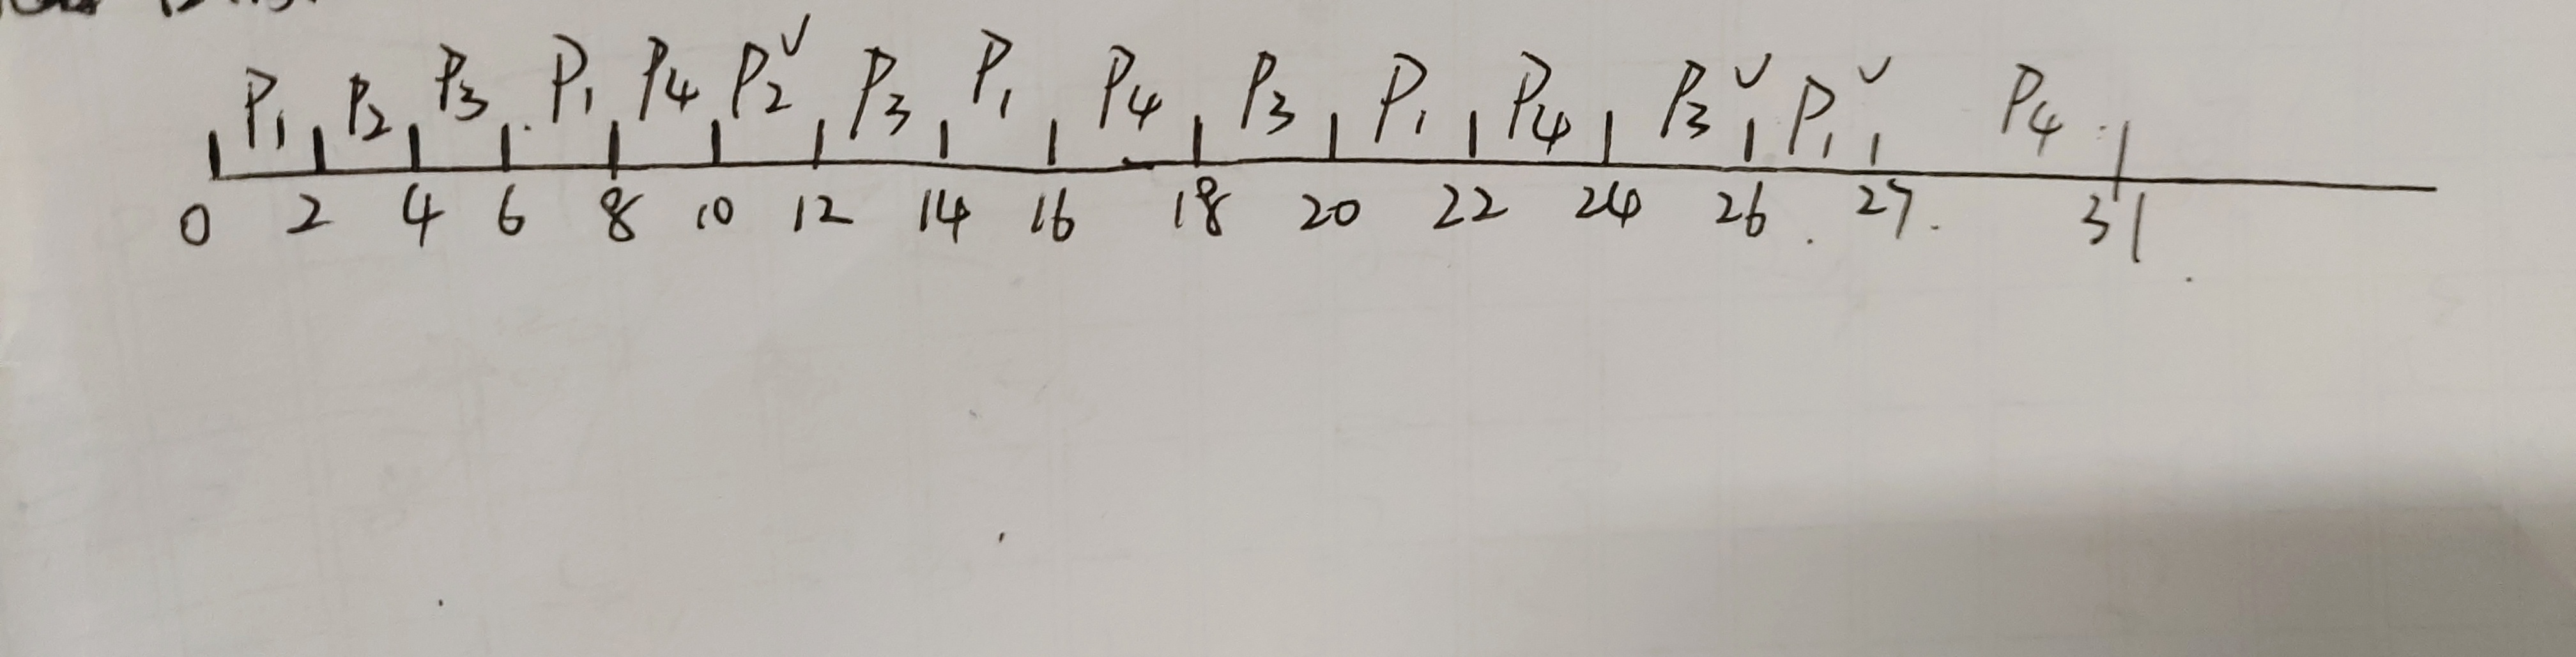 P1 P2 P3 P1 P4 P2 P3 P1 P4 P3 P1 P4 P3 P1 P4
0 2 4 6 8 10 12 14 16 18 20 22 24 26 27 31